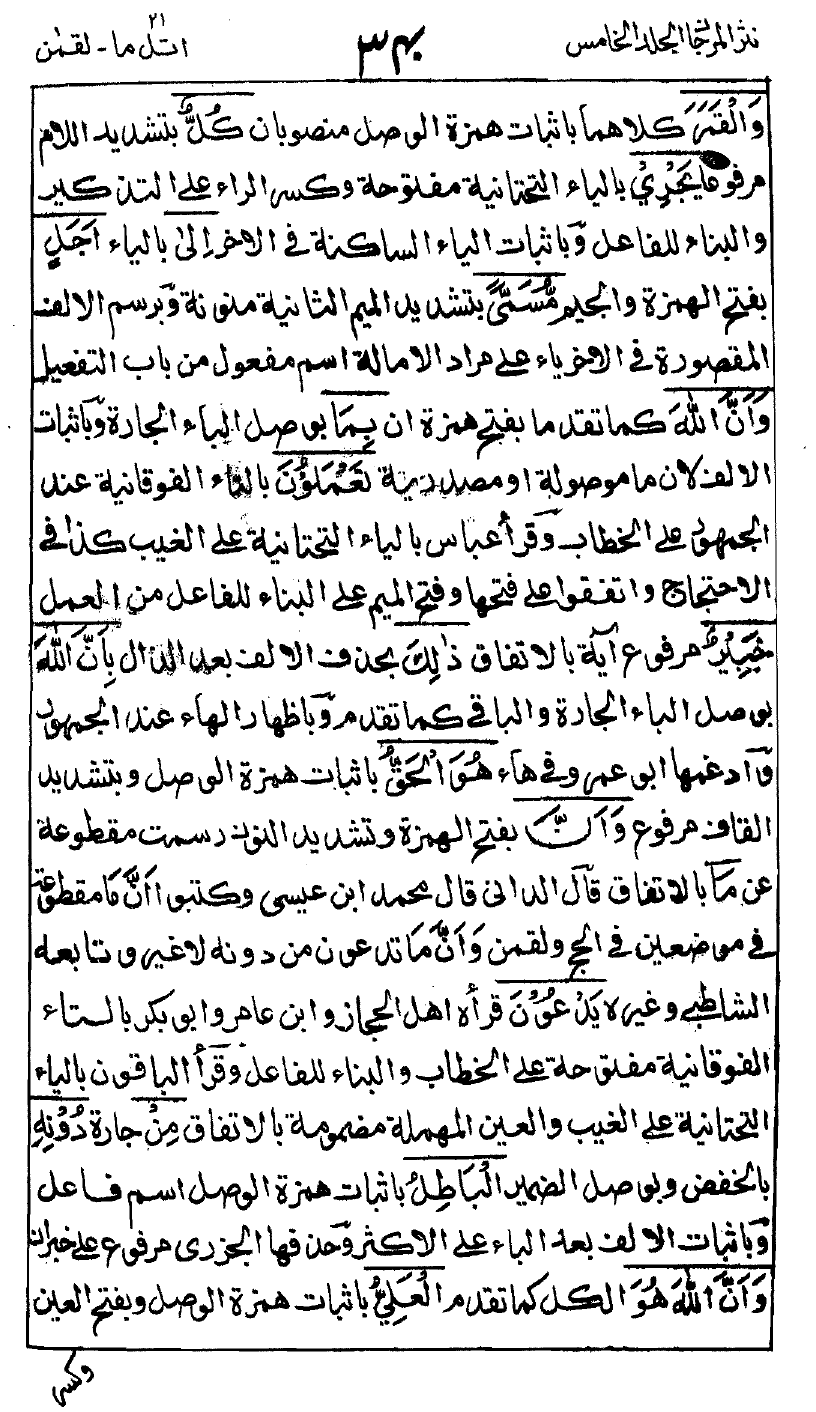 نثر المرجان الجلد الخامس
٣٠٤
اتل ما - لقمٰن ٢١
وَالْقَمَرَ كلاهما باثبات همزة الوصل منصوبان كُلٌّ بتشديد اللام
مرفوعا يَجْرِيْ بالياء التحتانية مفتوحة وكسر الراء على التذكير
والبناء للفاعل وباثبات الياء الساكنة في الاخر اِلىٰ بالياء اَجَلٍ
بفتح الهمزة والجيم مُّسَمًّى بتشديد الميم الثانية منونة وبرسم الالف
المقصورة في الاخر ياء على مراد الامالة اسم مفعول من باب التفعيل
وَاَنَّ اللهَ كما تقدما بفتح همزة ان بِمَا بوصل الباء الجارة وباثبات
الالف لان ما موصولة او مصدرية تَعْمَلُوْنَ بالتاء الفوقانية عند
الجمهور على الخطاب وقرأ عباس بالياء التحتانية على الغيب كذا في
الاحتجاج واتفقوا على فتحها وفتح الميم على البناء للفاعل من العمل
خَبِيْرٌ مرفوع آية بالاتفاق ذٰلِكَ بحذف الالف بعد الذال بِاَنَّ اللهَ
بوصل الباء الجارة والباقي كما تقدم وباظهار الهاء عند الجمهور
وآدغمها ابو عمرو في هاء هُوَ الْحَقُّ باثبات همزة الوصل وبتشديد
القاف مرفوع وَاَنَّ بفتح الهمزة وتشديد النون رسمت مقطوعة
عن مَا بالاتفاق قال الداني قال محمد ابن عيسى وكتبوا اَنَّ مَا مقطوعة
في موضعين في الحج ولقمن وَاَنَّ مَا تدعون من دونه لا غير وتابعه
الشاطبي وغيره يَدْعُوْنَ قرأه اهل الحجاز وابن عامر وابو بكر بالتاء
الفوقانية مفتوحة على الخطاب والبناء للفاعل وقرأ الباقون بالياء
التحتانية على الغيب والعين المهملة مضمومة بالاتفاق مِنْ جارة دُوْنِهِ
بالخفض وبوصل الضمير الْبَاطِلُ باثبات همزة الوصل اسم فاعل
وباثبات الالف بعد الباء على الاكثر وحذفها الجزري مرفوع على خبر ان
وَاَنَّ اللهَ هُوَ الكل كما تقدم الْعَلِيُّ باثبات همزة الوصل وبفتح العين
وكسر